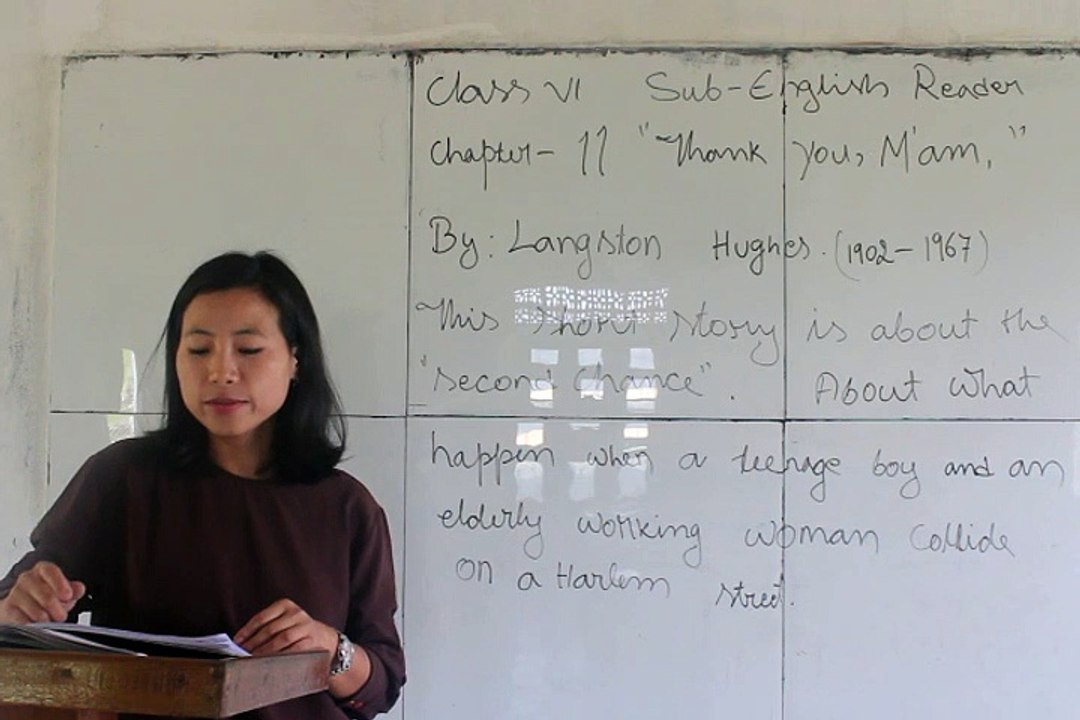 Class VI Sub-English Reader
Chapter- 11 "Thank you, M'am,"
By: Langston Hughes. (1902-1967)
This short story is about the
"second chance". About what
happen when a teenage boy and an
elderly working woman collide
on a Harlem street.